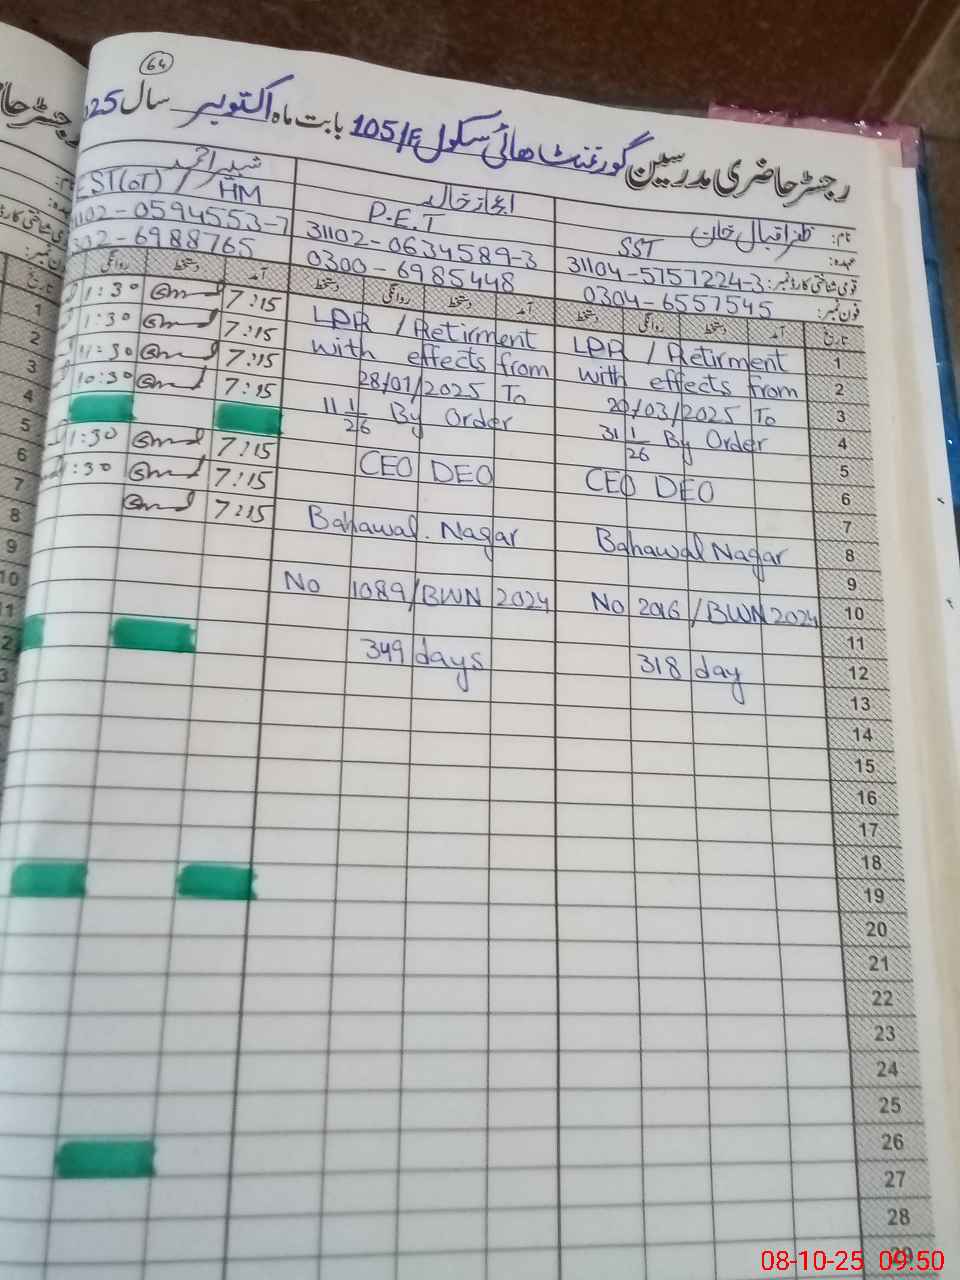 64
رجسٹر حاضری مدرسین گورنمنٹ ھائی سکول 105/F بابت ماہ اکتوبر سال 25
نام: ظفر اقبال خان
عہدہ: SST
قومی شناختی کارڈ نمبر: 31104-5757224-3
فون نمبر: 0304-6557545
تاریخ آمد دستخط روانگی دستخط
LPR / Retirment
with effects from
20/03/2025 To
31 1/26 By Order
CEO DEO
Bahawal Nagar
No 2016/BWN 2024
318 day
اعجاز خالد
P.E.T
31102-0634589-3
0300-6985448
آمد دستخط روانگی دستخط
LPR / Retirment
with effects from
28/01/2025 To
11 1/26 By Order
CEO DEO
Bahawal. Nagar
No 1089/BWN 2024
349 days
شبیر احمد
EST(OT) / HM
1102-0594553-7
302-6988765
آمد دستخط روانگی
7:15 1:30
7:15 1:30
7:15 11:30
7:15 10:30
7:15 1:30
7:15 1:30
7:15
تاریخ
1
2
3
4
5
6
7
8
9
10
11
12
13
14
15
16
17
18
19
20
21
22
23
24
25
26
27
28
29
08-10-25 09:50